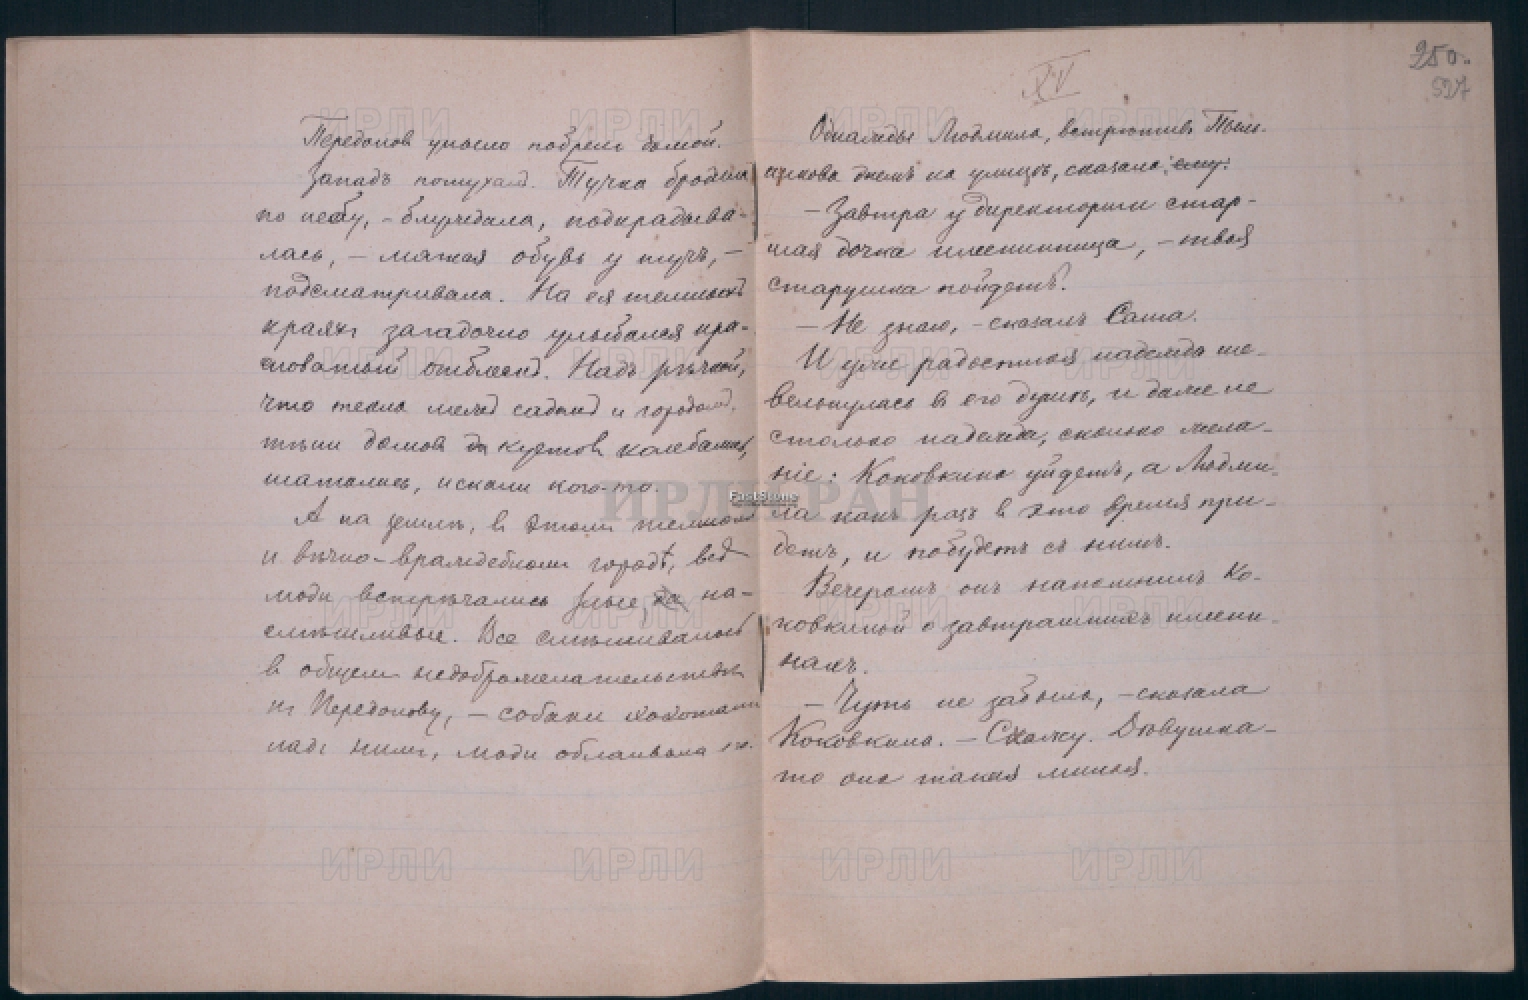 Передонов уныло побрелъ домой.
Западъ потухалъ. Тучка бродила
по небу, – блуждала, подкрадыва-
лась, – мягкая обувь у тучъ, –
подсматривала. На ея темныхъ
краяхъ загадочно улыбался кра-
сноватый отблескъ. Надъ рѣчкой,
что текла межъ садомъ и городомъ,
тѣни домовъ да кустовъ колебались,
шатались, искали кого-то.
А на землѣ, в этомъ темномъ
и вѣчно-враждебномъ городѣ, всѣ
люди встрѣчались злые, на-
смѣшливые. Все смѣшивалось
в общемъ недоброжелательствѣ
къ Передонову, – собаки хохотали
надъ нимъ, люди облаивали его.
XV
250.
527
Однажды Людмила, встрѣтивъ Пыль-
никова днемъ на улицѣ, сказала: ему:
– Завтра у директорши стар-
шая дочка именинница, – твоя
старушка пойдетъ?
– Не знаю, – сказалъ Саша.
И уже радостная надежда ше-
вельнулась в его душѣ, и даже не
столько надежда, сколько жела-
ніе: Коковкина уйдетъ, а Людми-
ла какъ разъ в это время при-
детъ, и побудетъ съ нимъ.
Вечеромъ онъ напомнилъ Ко-
ковкиной о завтрашнихъ имени-
нахъ.
– Чуть не забыла, – сказала
Коковкина. – Схожу. Дѣвушка-
то она такая милая.
ИРЛИ РАН
FastStone
ИРЛИ